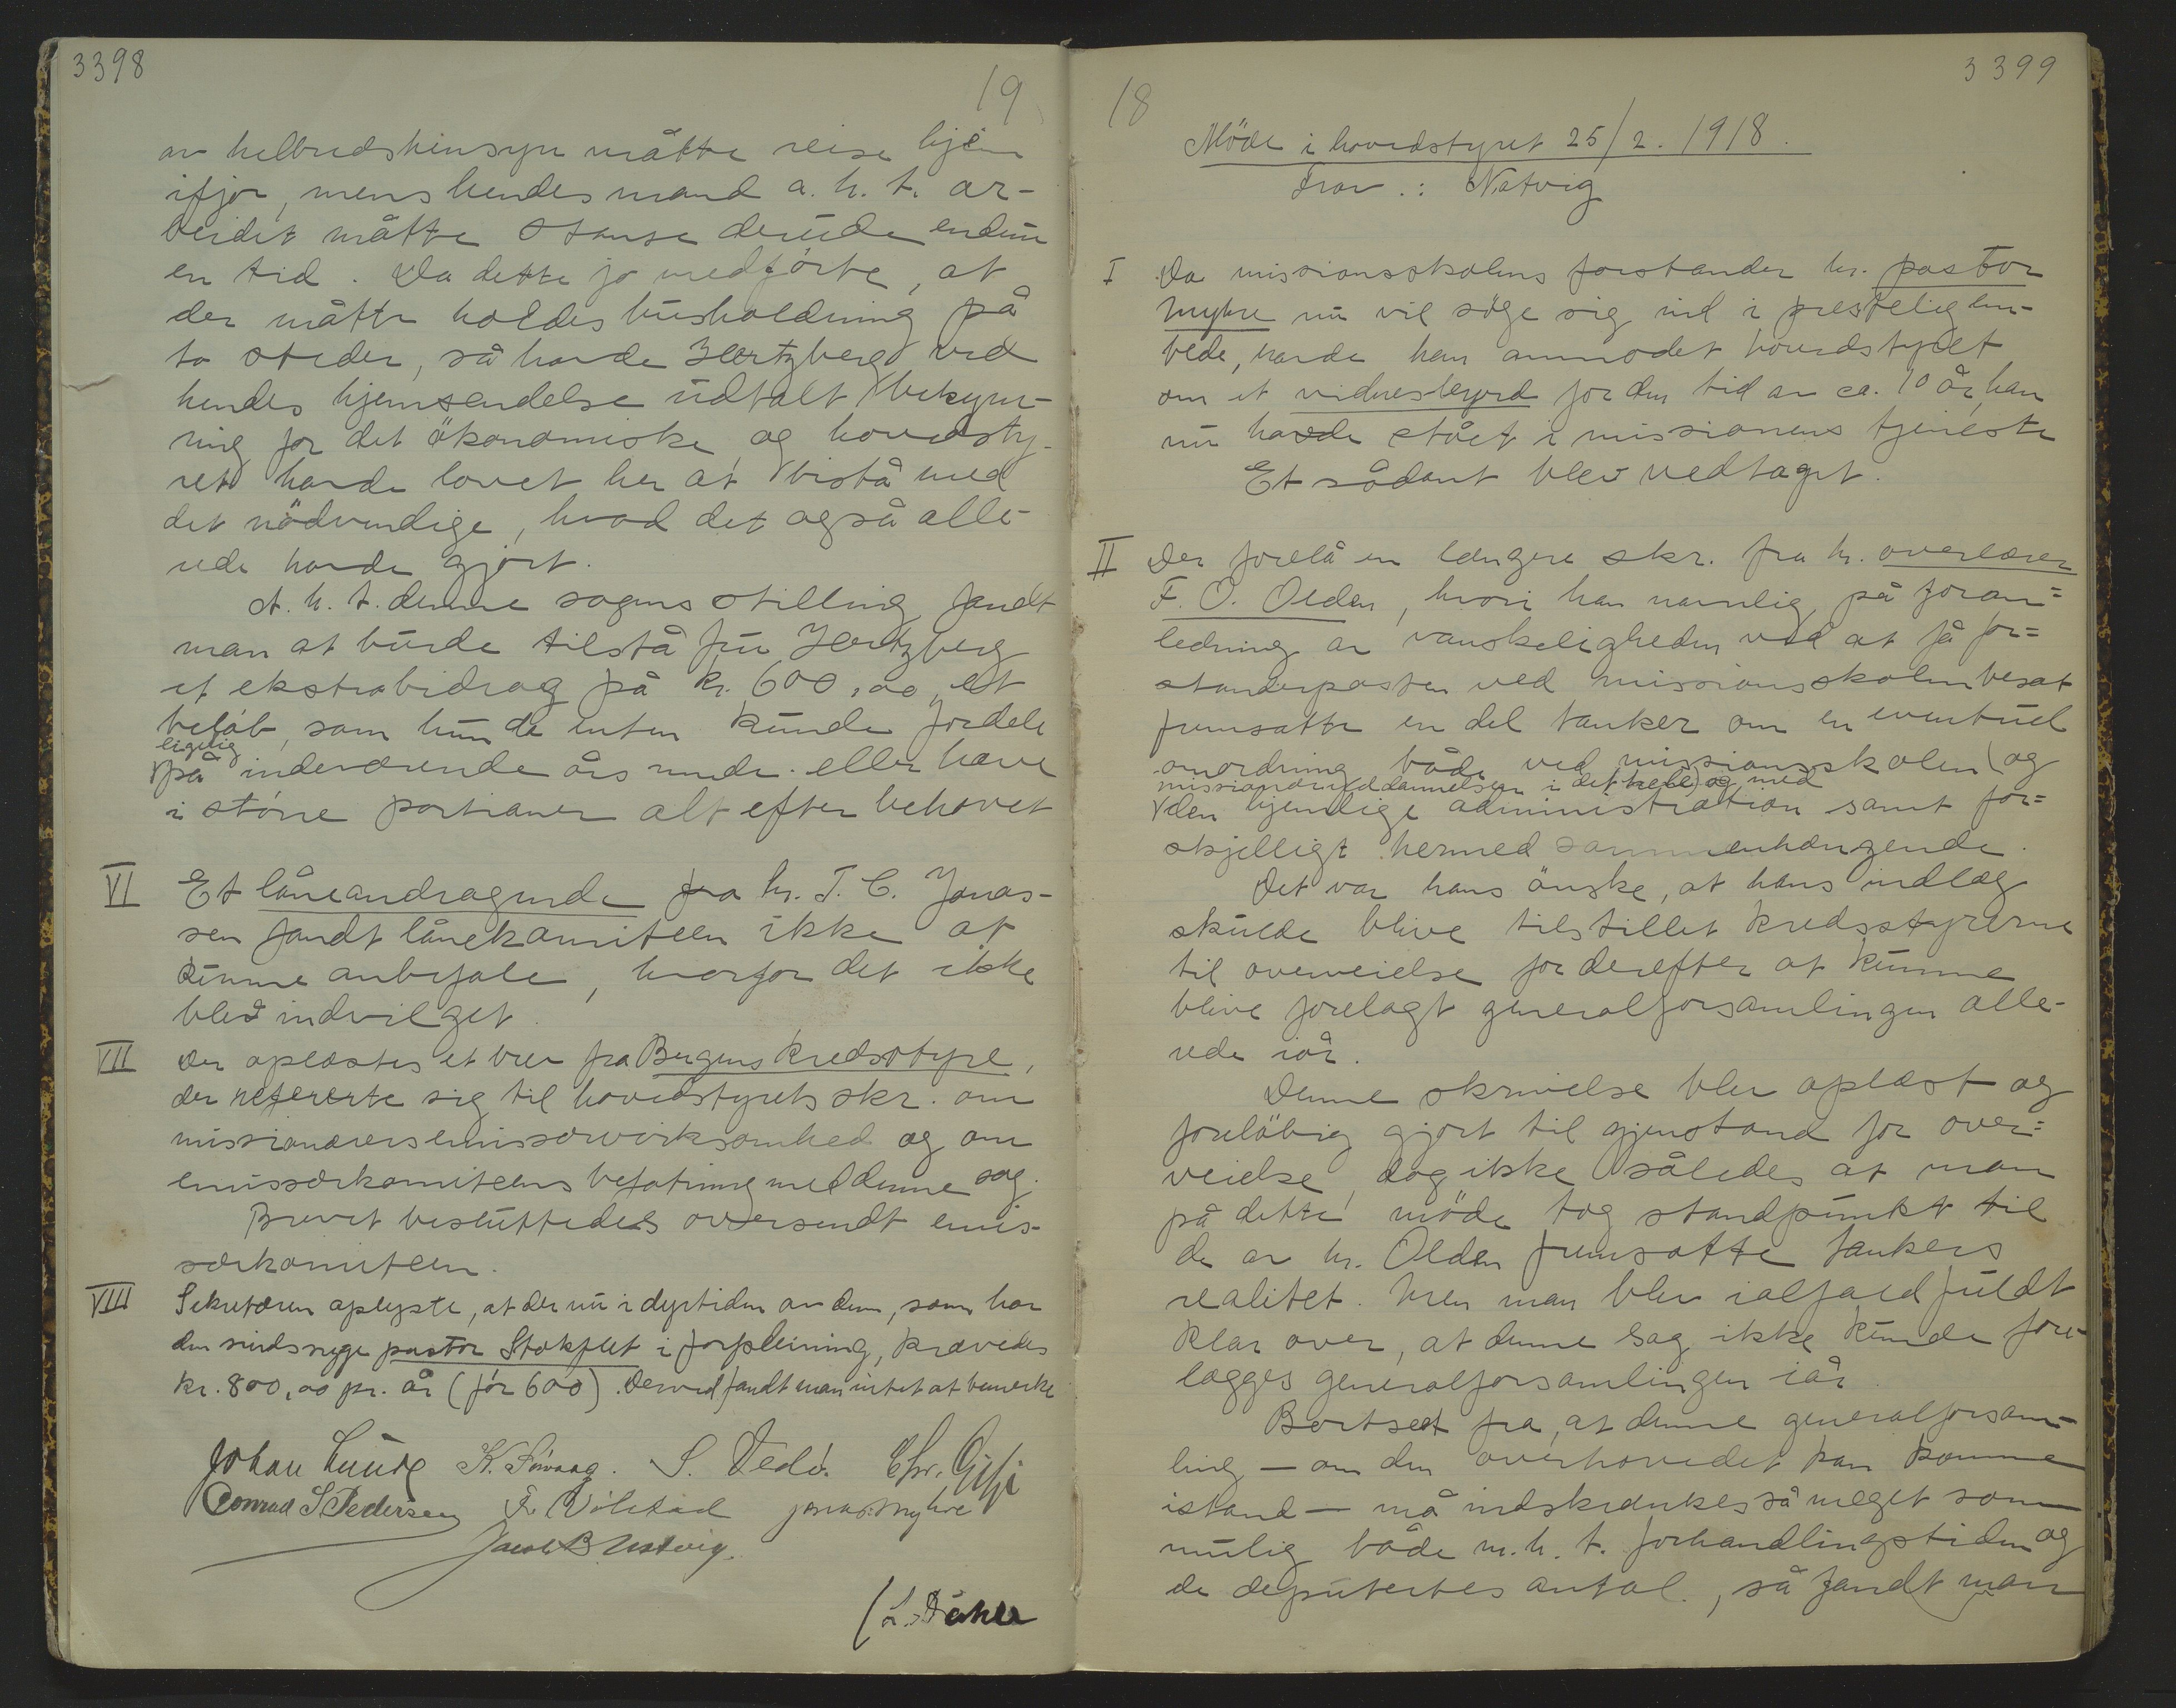 3398
19
av helbredshensyn måtte reise hjem
ifjor, mens hendes mand a. h. t. ar-
beidet måtte stanse derude endnu
en tid. Da dette jo medførte, at
der måtte holdes husholdning på
to steder, så havde Hertzberg ved
hendes hjemsendelse udtalt bekym-
ring for det økonomiske, og hovedsty-
ret havde lovet her at bistå med
det nödvendige, hvad det også alle-
rede havde gjort.
A. h. t. denne sagens stilling fandt
man at burde tilstå fru Hertzberg
et ekstrabidrag på kr. 600,00, et
beløb, som hun da enten kunde fordele
ligelig
på indeværende års mndr. eller hæve
i större portioner alt efter behovet
VI Et låneandragende fra hr. T. C. Jonas-
sen fandt lånekomiteen ikke at
kunne anbefale, hvorfor det ikke
blev indvilget.
VII Der oplæstes et brev fra Bergens kredsstyre,
der refererte sig til hovedstyrets skr. om
missionærers emissærvirksomhed og om
emissærkomiteens befatning med denne sag.
Brevet besluttedes oversendt emis-
særkomiteen.
VIII Sekretæren oplyste, at der nu i dyrtiden av dem, som har
den sindssyge pastor Stokflet i forpleining, krævedes
kr. 800,00 pr. år (før 600). Derved fandt man intet at bemerke
Johan Lunde K. Sövaag. S. Vedö. Chr. Gjør
Conrad S Pedersen F. Völstad Jonas Myhre
Jacob B Natvig.
/ L. Dahle
3399
18
Möde i hovedstyret 25/2. 1918.
Frav.: Natvig
I Da missionsskolens forstander hr. pastor
Myhre nu vil söge sig ind i prestelig em-
bede, havde han anmodet hovedstyret
om et vidnesbyrd for den tid av ca. 10 år, han
nu havde stået i missionens tjeneste
Et sådant blev vedtaget.
II Der forelå en længere skr. fra hr. overlærer
F. O. Olden, hvori han navnlig på foran=
ledning av vanskeligheden ved at få for=
standerposten ved missionsskolen besat
fremsatte en del tanker om en eventuel
omordning både ved missionsskolen (og
missionæruddannelsen i det hele) og med
den hjemlige administration samt for=
skjelligt hermed sammenhængende.
Det var hans önske, at hans indlæg
skulde blive tilstillet kredsstyrerne
til overveielse for derefter at kunne
blive forelagt generalforsamlingen alle-
rede iår.
Denne skrivelse blev oplæst og
foreløbig gjort til gjenstand for over=
veielse, dog ikke således at man
på dette möde tog standpunkt til
de av hr. Olden fremsatte tankers
realitet. Men man blev ialfald fuldt
klar over, at denne sag ikke kunde fore-
lægges generalforsamlingen iår
Bortseet fra, at denne generalforsam-
ling — om den overhovedet kan komme
istand — må indskrænkes så meget som
mulig både m. h. t. forhandlingstiden og
de deputertes antal, så fandt man